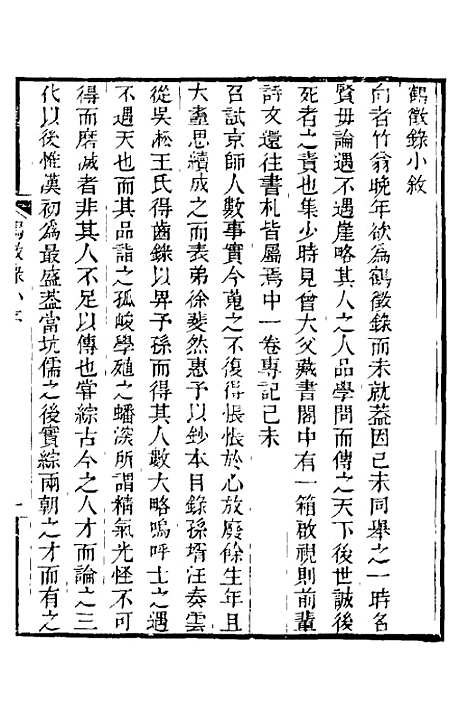 鶴徵錄小敘
向者竹翁晚年欲為鶴徵錄而未就蓋因己未同舉之一時名
賢毋論遇不遇崖略其人之人品學問而傳之天下後世誠後
死者之責也集少時見曾大父藏書閣中有一箱啟視則前輩
詩文還往書札皆屬焉中一卷專記己未
召試京師人數事實今蒐之不復得悵悵於心放廢餘生年且
大耋思續成之而表弟徐斐然惠予以鈔本目錄孫壻汪奏雲
從吳淞王氏得齒錄以畀予孫而得其人數大略嗚呼士之遇
不遇天也而其品詣之孤峻學殖之蟠深所謂精氣光怪不可
得而磨滅者非其人不足以傳也嘗綜古今之人才而論之三
代以後惟漢初為最盛葢當坑儒之後實綜兩朝之才而有之
鶴徵錄小序
一